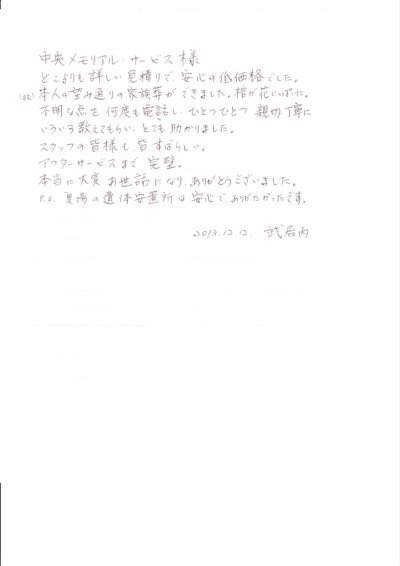 中央メモリアル・サービス様
どこよりも詳しい見積りで、安心の低価格でした。
本人の望み通りの家族葬ができました。棺が花いっぱいに。
不明な点を何度も電話し、ひとつひとつ親切丁寧に
いろいろ教えてもらい、とても助かりました。
スタッフの皆様も皆すばらしい。
アフターサービスまで完璧。
本当に大変お世話になり、ありがとうございました。
P.S. 斎場の遺体安置所は安心で、ありがたかったです。
2013.12.12.